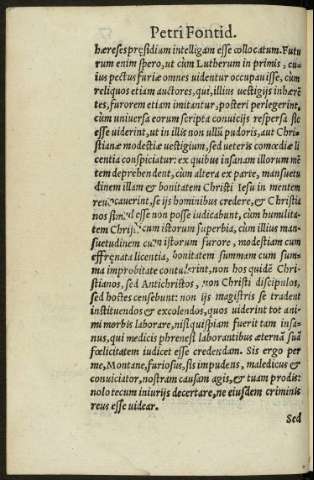 Petri Fontid.
hæreses præsidium intelligam esse collocatum. Futu
rum enim spero, ut cùm Lutherum in primis, cu
ius pectus furiæ omnes uidentur occupauisse, cùm
reliquos etiam auctores, qui, illius uestigijs inhærē
tes, furorem etiam imitantur, posteri perlegerint,
cùm uniuersa eorum scripta conuicijs respersa sic
esse uiderint, ut in illis non ullū pudoris, aut Chri-
stianæ modestiæ uestigium, sed ueteris comœdiæ li
centia conspiciatur: ex quibus insanam illorum mē
tem deprehendent, cùm altera ex parte, mansuetu
dinem illam & bonitatem Christi Iesu in mentem
reuocauerint, se ijs hominibus credere, & Christia
nos simul esse non posse iudicabunt, cùm humilita
tem Christi cum istorum superbia, cùm illius man-
suetudinem cum istorum furore, modestiam cum
effrenata licentia, bonitatem summam cum sum-
ma improbitate contulerint, non hos quidē Chri-
stianos, sed Antichristos, non Christi discipulos,
sed hostes censebunt: non ijs magistris se tradent
instituendos & excolendos, quos uiderint tot ani
mi morbis laborare, nisi quispiam fuerit tam insa-
nus, qui medicis phrenesi laborantibus æternā suā
fœlicitatem iudicet esse credendam. Sis ergo per
me, Montane, furiosus, sis impudens, maledicus &
conuiciator, nostram causam agis, & tuam prodis:
nolo tecum iniurijs decertare, ne eiusdem criminis
reus esse uidear.
Sed